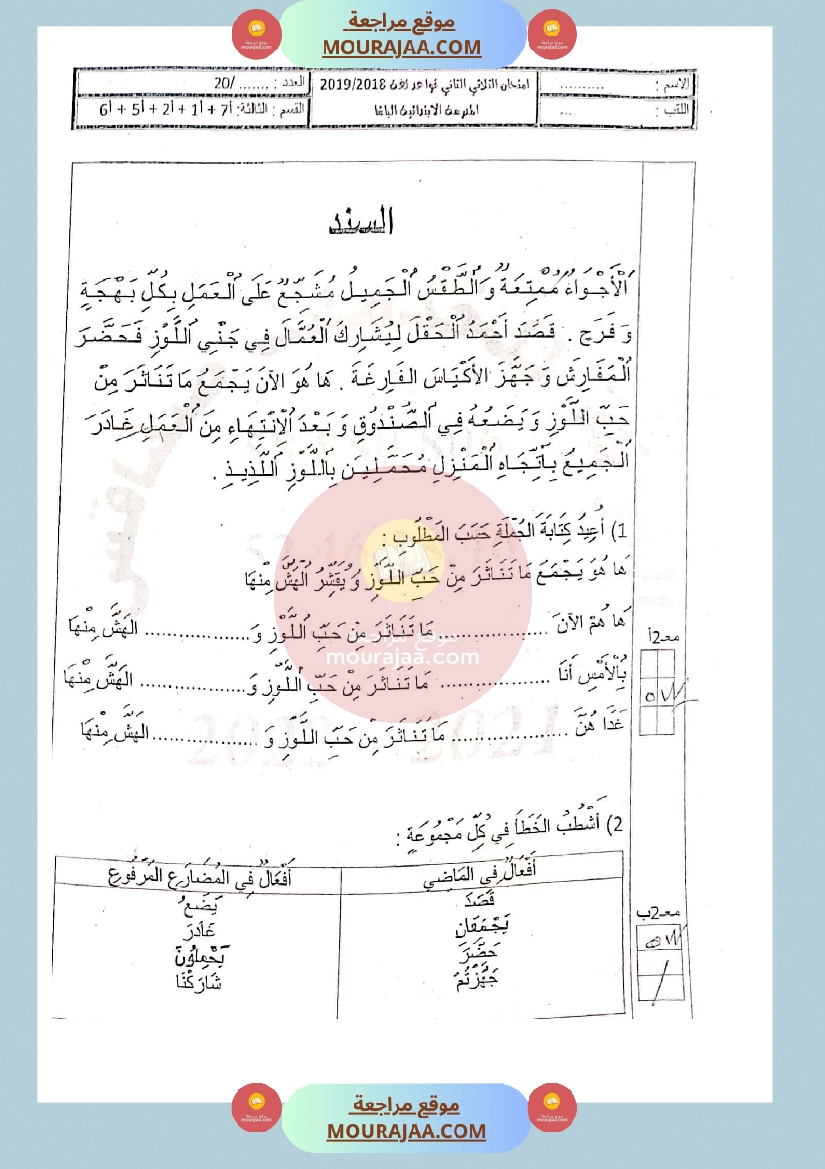 موقع مراجعة
MOURAJAA.COM
الاسم : ..........
امتحان الثلاثي الثاني قواعد لغة 2019/2018
العدد : ....... /20
اللقب : ...
المدرسة الابتدائية
القسم : الثالثة: أ7 + أ1 + أ2 + أ5 + أ6
السند
اَلْأَجْوَاءُ مُمْتِعَةٌ وَ اَلْطَّقْسُ اُلْجَمِيلُ مُشَجِّعٌ عَلَى اُلْعَمَلِ بِكُلِّ بَهْجَةٍ
وَ فَرَحٍ . قَصَدَ أَحْمَدُ اُلْحَقْلَ لِيُشَارِكَ اُلْعُمَّالَ فِي جَنْيِ اَللَّوْزِ فَحَضَّرَ
اُلْمَفَارِشَ وَ جَهَّزَ الأَكْيَاسَ الفَارِغَةَ . هَا هُوَ الآنَ يَجْمَعُ مَا تَنَاثَرَ مِنْ
حَبِّ اللَّوْزِ وَ يَضَعُهُ فِي اُلصُّنْدُوقِ وَ بَعْدَ اُلِانْتِهَاءِ مِنَ اُلْعَمَلِ غَادَرَ
اُلْجَمِيعُ بِاُتِّجَاهِ اُلْمَنْزِلِ مُحَمَّلِيـنَ بِاللَّوْزِ اَللَّذِيذِ .
1) أُعِيدُ كِتَابَةَ الجُمْلَةِ حَسَبَ المَطْلُوبِ :
هَا هُوَ يَجْمَعَ مَا تَنَاثَرَ مِنْ حَبِّ اللَّوْزِ وَ يُقَشِّرُ الهَشَّ مِنْهَا
هَا هُمْ الآنَ ................... مَا تَنَاثَرَ مِنْ حَبِّ اللَّوْزِ وَ.................. الهَشَّ مِنْهَا
معـ2أ
بِالْأَمْسِ أَنَا ................... مَا تَنَاثَرَ مِنْ حَبِّ اللَّوْزِ وَ.................. الهَشَّ مِنْهَا
غَدًا هُنَّ .................... مَا تَنَاثَرَ مِنْ حَبِّ اللَّوْزِ وَ .................. الهَشَّ مِنْهَا
2) أَشْطُبُ الخَطَأَ فِي كُلِّ مَجْمُوعَةٍ :
أَفْعَالٌ فِي المَاضِي
أَفْعَالٌ فِي المُضَارِعِ المَرْفُوعِ
قَصَدَ
يَضَعُ
معـ2ب
يَجْمَعَانِ
غَادَرَ
حَضَّرَ
يَحْمِلُونَ
جَهَّزْتُمْ
شَارَكْنَا
موقع مراجعة
mourajaa.com
موقع مراجعة
MOURAJAA.COM